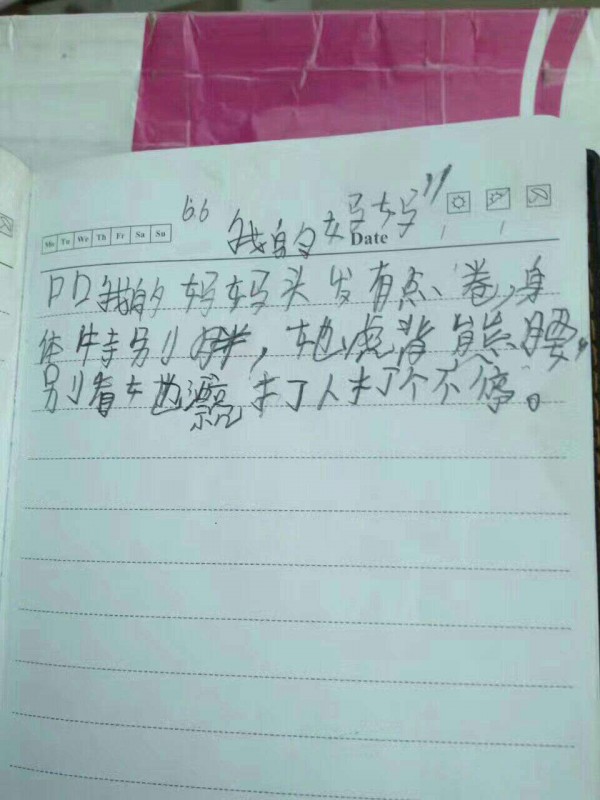 “我的妈妈”
Mo Tu We Th Fr Sa Su
Date
口口我的妈妈头发有点卷,身
体特别胖,她虎背熊腰,
别看她漂亮打人打个不停。